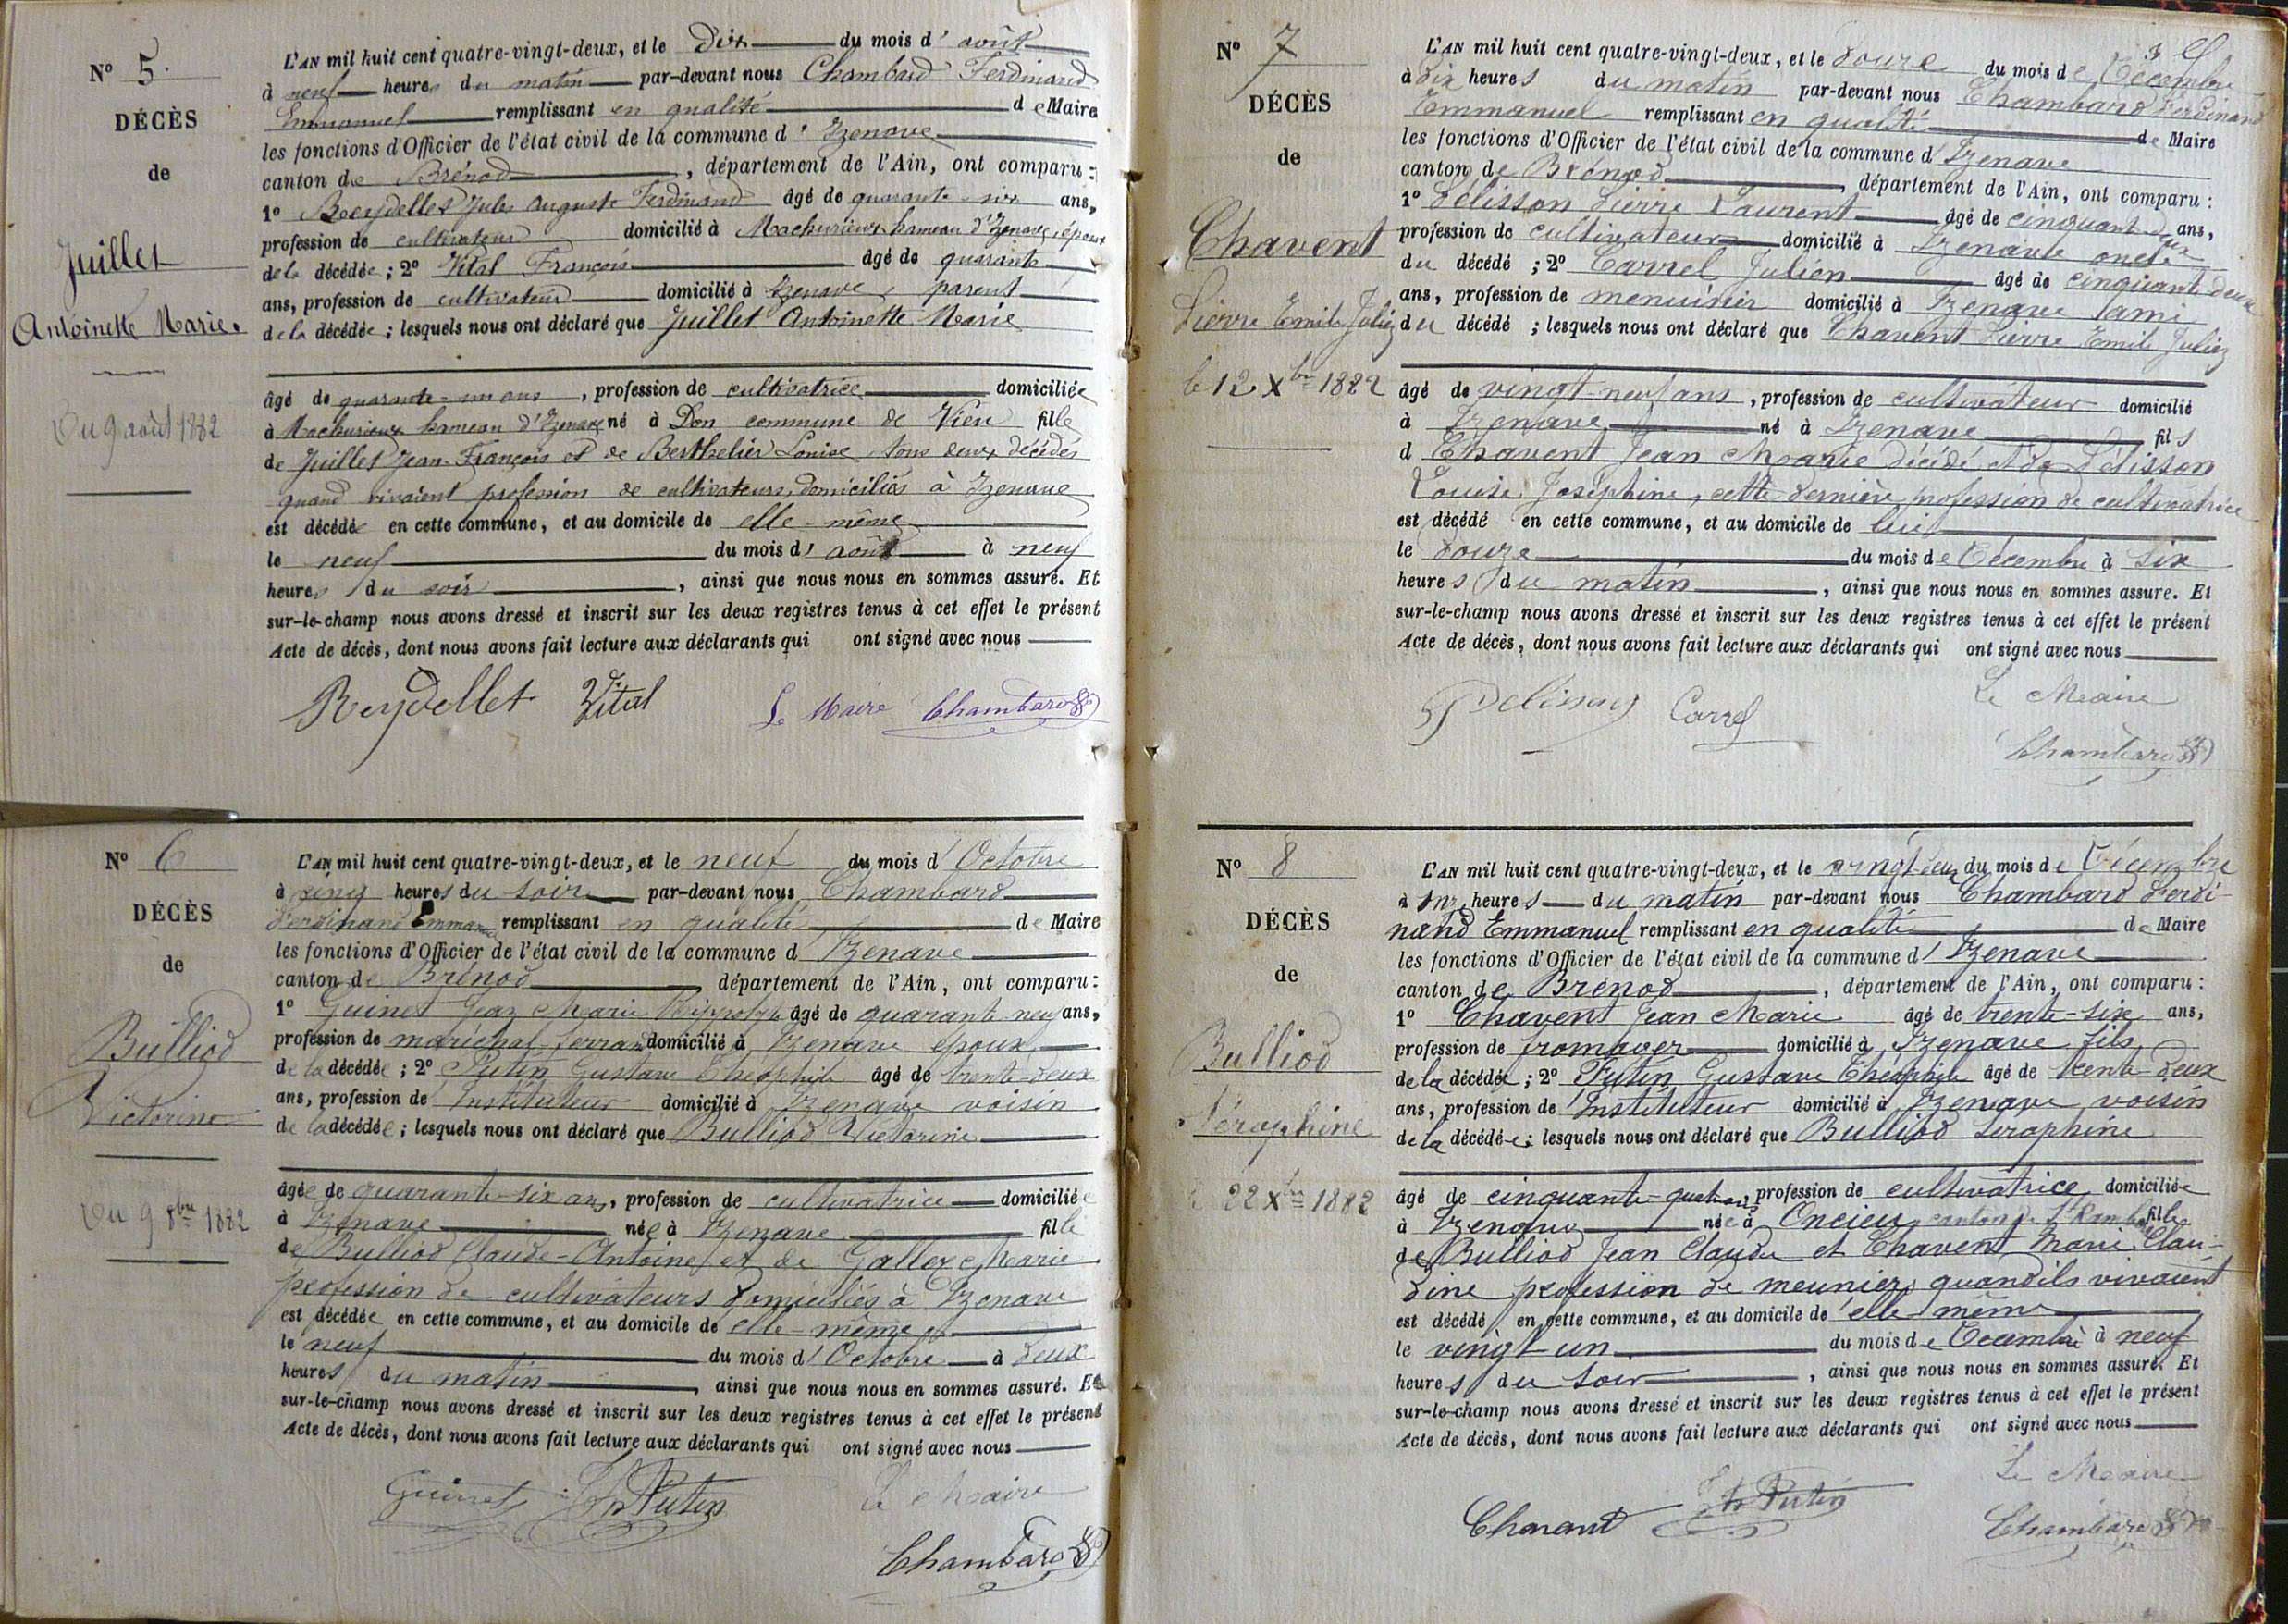 N° 5.
DÉCÈS
de
Juillet
Antoinette Marie.
Du 9 août 1882
L'AN mil huit cent quatre-vingt-deux, et le Dix du mois d' août
à neuf heures du matin par-devant nous Chambard Ferdinand
Emmanuel remplissant en qualité de Maire
les fonctions d'Officier de l'état civil de la commune d' Izenave
canton de Brénod, département de l'Ain, ont comparu :
1° Reydellet Jules Auguste Ferdinand âgé de quarante-six ans,
profession de cultivateur domicilié à Machurieux hameau d'Izenave, époux
de la décédée ; 2° Vital François âgé de quarante
ans, profession de cultivateur domicilié à Izenave, parent
de la décédée ; lesquels nous ont déclaré que Juillet Antoinette Marie
âgé de quarante-un ans, profession de cultivatrice domiciliée
à Machurieux hameau d'Izenave né à Don commune de Vieu fille
de Juillet Jean-François et de Berthelier Louise tous deux décédés
quand vivaient profession de cultivateurs, domiciliés à Izenave
est décédée en cette commune, et au domicile de elle-même
le neuf du mois d' août à neuf
heures du soir, ainsi que nous nous en sommes assuré. Et
sur-le-champ nous avons dressé et inscrit sur les deux registres tenus à cet effet le présent
Acte de décès, dont nous avons fait lecture aux déclarants qui ont signé avec nous
Reydellet Vital Le Maire Chambard
N° 6
DÉCÈS
de
Bulliod
Victorine
Du 9 8bre 1882
L'AN mil huit cent quatre-vingt-deux, et le neuf du mois d' Octobre
à cinq heures du soir par-devant nous Chambard
Ferdinand Emmanuel remplissant en qualité de Maire
les fonctions d'Officier de l'état civil de la commune d' Izenave
canton de Brénod, département de l'Ain, ont comparu :
1° Guinet Jean Marie Hippolyte âgé de quarante-neuf ans,
profession de maréchal-ferrant domicilié à Izenave époux
de la décédée ; 2° Putin Gustave Théophile âgé de trente-deux
ans, profession de Instituteur domicilié à Izenave voisin
de la décédée ; lesquels nous ont déclaré que Bulliod Victorine
âgée de quarante-six ans, profession de cultivatrice domiciliée
à Izenave née à Izenave fille
de Bulliod Claude-Antoine et de Gallex Marie
profession de cultivateurs domiciliés à Izenave
est décédée en cette commune, et au domicile de elle-même
le neuf du mois d' Octobre à deux
heures du matin, ainsi que nous nous en sommes assuré. Et
sur-le-champ nous avons dressé et inscrit sur les deux registres tenus à cet effet le présent
Acte de décès, dont nous avons fait lecture aux déclarants qui ont signé avec nous
Guinet Th Putin Le Maire
Chambard
N° 7
DÉCÈS
de
Chavent
Pierre Emile Julien
le 12 Xbre 1882
L'AN mil huit cent quatre-vingt-deux, et le Douze du mois de Décembre
à Dix heures du matin par-devant nous Chambard Ferdinand
Emmanuel remplissant en qualité de Maire
les fonctions d'Officier de l'état civil de la commune d' Izenave
canton de Brénod, département de l'Ain, ont comparu :
1° Pélisson Pierre Laurent âgé de cinquante ans,
profession de cultivateur domicilié à Izenave oncle
du décédé ; 2° Carrel Julien âgé de cinquante-deux
ans, profession de menuisier domicilié à Izenave l'ami
du décédé ; lesquels nous ont déclaré que Chavent Pierre Emile Julien
âgé de vingt-neuf ans, profession de cultivateur domicilié
à Izenave né à Izenave fils
d Chavent Jean Marie décédé et de Pélisson
Louise Joséphine, cette dernière profession de cultivatrice
est décédé en cette commune, et au domicile de lui
le douze du mois de Décembre à six
heures du matin, ainsi que nous nous en sommes assuré. Et
sur-le-champ nous avons dressé et inscrit sur les deux registres tenus à cet effet le présent
Acte de décès, dont nous avons fait lecture aux déclarants qui ont signé avec nous
Pelisson Carrel Le Maire
Chambard
N° 8
DÉCÈS
de
Bulliod
Séraphine
22 Xbre 1882
L'AN mil huit cent quatre-vingt-deux, et le vingt-deux du mois de Décembre
à onze heures du matin par-devant nous Chambard Ferdi-
nand Emmanuel remplissant en qualité de Maire
les fonctions d'Officier de l'état civil de la commune d' Izenave
canton de Brénod, département de l'Ain, ont comparu :
1° Chavent Jean Marie âgé de trente-six ans,
profession de fromager domicilié à Izenave fils
de la décédée ; 2° Putin Gustave Théophile âgé de trente-deux
ans, profession de Instituteur domicilié à Izenave voisin
de la décédée ; lesquels nous ont déclaré que Bulliod Seraphine
âgé de cinquante-quatre ans, profession de cultivatrice domiciliée
à Izenave née à Oncieu canton de St Rambert fille
de Bulliod Jean Claude et Chavent Marie Clau-
dine profession de meuniers quand ils vivaient
est décédé en cette commune, et au domicile de elle-même
le vingt-un du mois de Décembre à neuf
heures du soir, ainsi que nous nous en sommes assuré. Et
sur-le-champ nous avons dressé et inscrit sur les deux registres tenus à cet effet le présent
Acte de décès, dont nous avons fait lecture aux déclarants qui ont signé avec nous
Le Maire
Chavant Th Putin Chambard